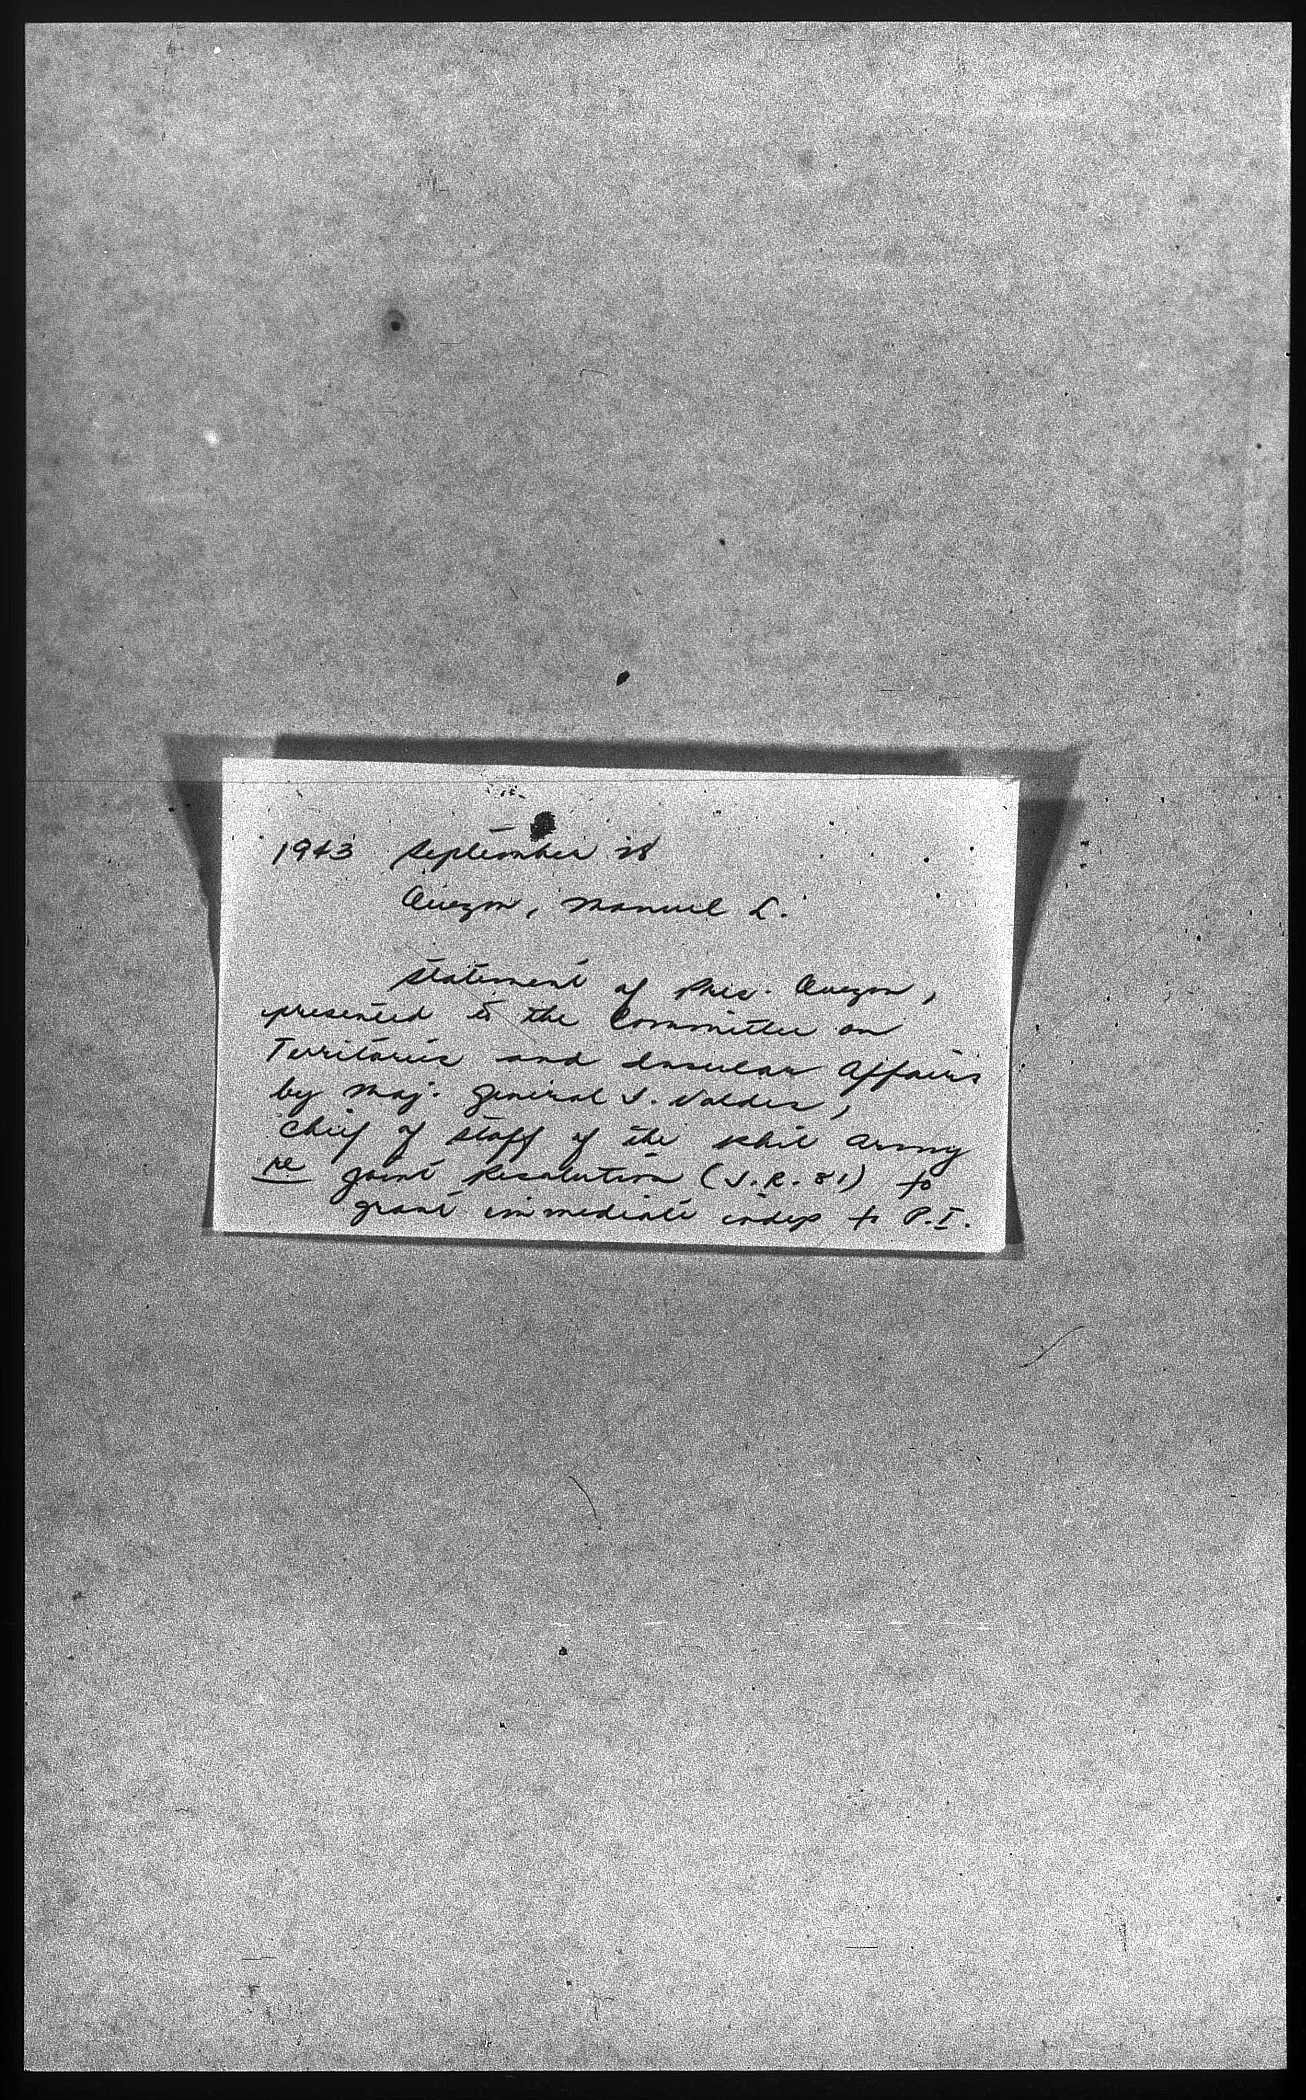 1943 September 28
Quezon, Manuel L.
Statement of Pres. Quezon,
presented to the Committee on
Territories and Insular Affairs
by Maj. General J. Valdes,
Chief of Staff of the Phil Army
re Joint Resolution (J.R. 81) to
grant immediate indep to P.I.